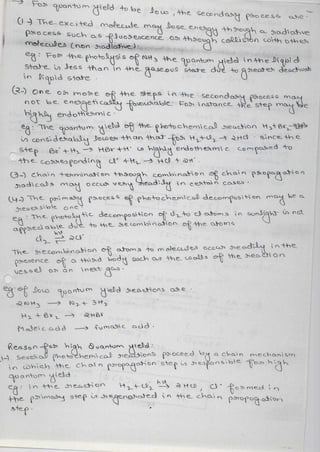 → For quantum yield to be low, the secondary process are -
(1) The excited molecule may lose energy through a radiative
process such as fluorescence or through collision with other
molecules (non radiative).
eg: For the photolysis of NH3 the quantum yield in the liquid
state is less than in the gaseous state due to greater deactivat
in liquid state.
(2.) One or more of the steps in the secondary process may
not be energetically favourable. For instance the step may be
highly endothermic.
eg: The quantum yield of the photochemical reaction H2+Br2→2HBr
is considerably lower than that for H2+Cl2 → 2HCl since the
step Br˙ + H2 → HBr + H˙ is highly endothermic compared to
the corresponding Cl˙ + H2 → HCl + H˙
(3.) Chain termination through combination of chain propagation
radicals may occur very readily in certain cases.
(4.) The primary process of photochemical decomposition may be a
reversible one.
eg. The photolytic decomposition of Cl2 to Cl atoms in sunlight is not
appreciable due to the recombination of the atoms
Cl2 ⇌ 2Cl˙
hν
The recombination of atoms to molecules occur readily in the
presence of a third body such as the walls of the reaction
vessel or an inert gas.
eg of low quantum yield reactions are -
2NH3 → N2 + 3H2
H2 + Br2 → 2HBr
Maleic acid → fumaric acid.
Reason for high Quantum yield:
(1) Several photochemical reactions proceed by a chain mechanism
in which the chain propagation step is responsible for high
quantum yield.
eg: In the reaction H2 + Cl2 hν→ 2HCl, Cl˙ formed in
the primary step is regenerated in the chain propagation
step.